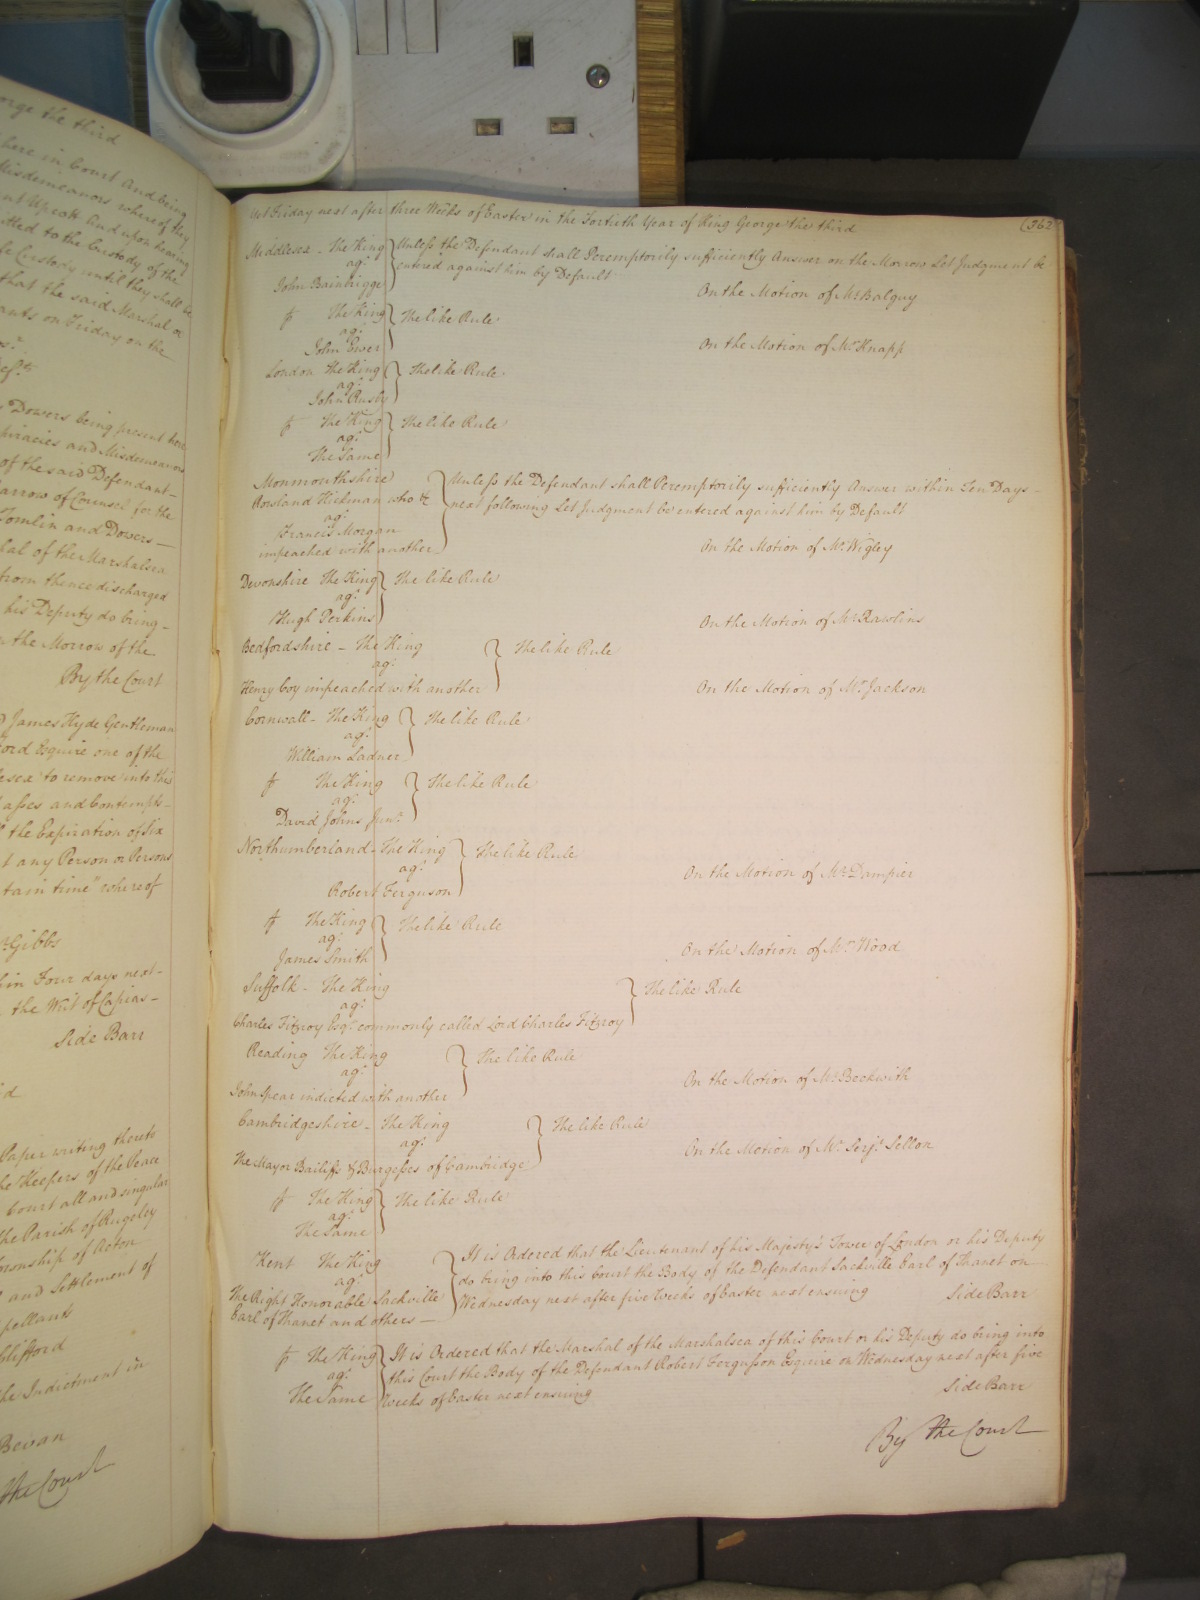 orge the third
here in Court And being
Misdemeanors whereof they
nt Upcott And upon hearing
itted to the Custody of the
fe Custody until they shall be
that the said Marshal or
ants on Friday on the
Dowers being present here
piracies and Misdemeanors
of the said Defendant
arrow of Counsel for the
Tomlin and Dowers
hal of the Marshalsea
from thence discharged
his Deputy do bring
the Morrow of the
By the Court
James Hyde Gentleman
ord Esquire one of the
esex to remove into this
asses and Contempts
the Expiration of Six
t any Person or Persons
tain time" whereof
Gibbs
hin Four days next
the Writ of Capias
Side Barr
Paper writing thereto
he Keepers of the Peace
Court all and singular
the Parish of Rugeley
ownship of Acton
and Settlement of
pellants
Clifford
he Indictment in
Bevan
the Court
Yet Friday next after three Weeks of Easter in the Fortieth Year of King George the third
362
Middlesex - The King Unless the Defendant shall Peremptorily sufficiently Answer on the Morrow Let Judgment be
agt entered against him by Default
John Bainbrigge On the Motion of Mr Balguy
The King The like Rule
agt
John Ewer On the Motion of Mr Knapp
London The King The like Rule
agt
John Rusby
The King The like Rule
agt
The Same
Monmouthshire Unless the Defendant shall Peremptorily sufficiently Answer within Ten Days
Rowland Hickman who &c next following Let Judgment be entered against him by Default
agt
Francis Morgan
impeached with another On the Motion of Mr Wigley
Devonshire The King The like Rule
agt
Hugh Perkins On the Motion of Mr Rawlins
Bedfordshire - The King The like Rule
agt
Henry Coy impeached with another On the Motion of Mr Jackson
Cornwall - The King The like Rule
agt
William Ladner
The King The like Rule
agt
David Johns Junr
Northumberland - The King The like Rule
agt
Robert Ferguson On the Motion of Mr Dampier
The King The like Rule
agt
James Smith On the Motion of Mr Wood
Suffolk - The King The like Rule
agt
Charles Fitzroy Esqr commonly called Lord Charles Fitzroy
Reading The King The like Rule
agt
John Spear indicted with another On the Motion of Mr Beckwith
Cambridgeshire - The King The like Rule
agt
The Mayor Bailiffs & Burgesses of Cambridge On the Motion of Mr Serjt Sellon
The King The like Rule
agt
The Same
Kent The King It is Ordered that the Lieutenant of his Majesty's Tower of London or his Deputy
agt do bring into this Court the Body of the Defendant Sackville Earl of Thanet on
The Right Honorable Sackville Wednesday next after five Weeks of Easter next ensuing Side Barr
Earl of Thanet and others
The King It is Ordered that the Marshal of the Marshalsea of this Court or his Deputy do bring into
agt this Court the Body of the Defendant Robert Fergusson Esquire on Wednesday next after five
The Same Weeks of Easter next ensuing Side Barr
By the Court